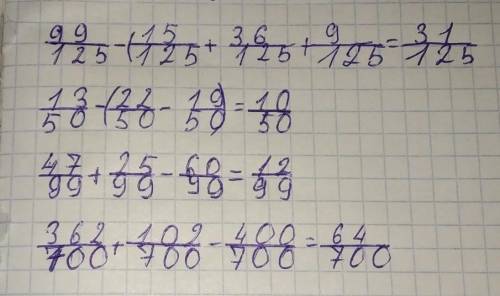 99/125 - (15/125 + 36/125 + 9/125 = 31/125
13/50 - (22/50 - 19/50) = 10/50
47/99 + 25/99 - 60/99 = 12/99
362/700 + 102/700 - 400/700 = 64/700